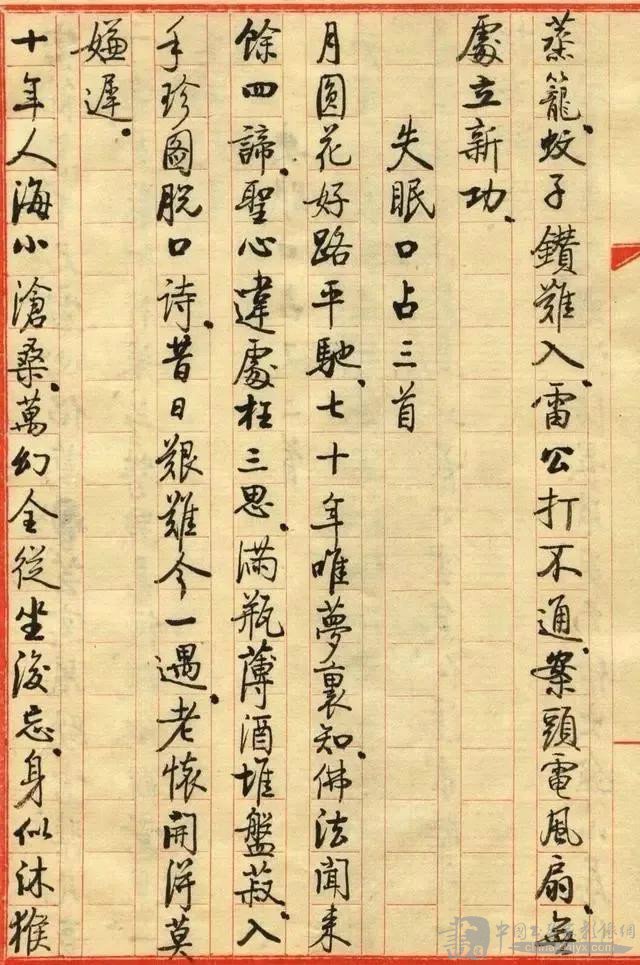 蒸籠.蚊子鑽難入.雷公打不通.案頭電風扇.無
處立新功.
失眠口占三首
月圓花好路平馳.七十年唯夢裏知.佛法聞来
餘四諦.聖心違處枉三思.滿瓶薄酒堆盤菽.入
手珍圖脫口诗.昔日艱難今一遇.老懷開浔莫
嫌遲.
十年人海小滄桑.萬幻全從坐後忘.身似沐猴